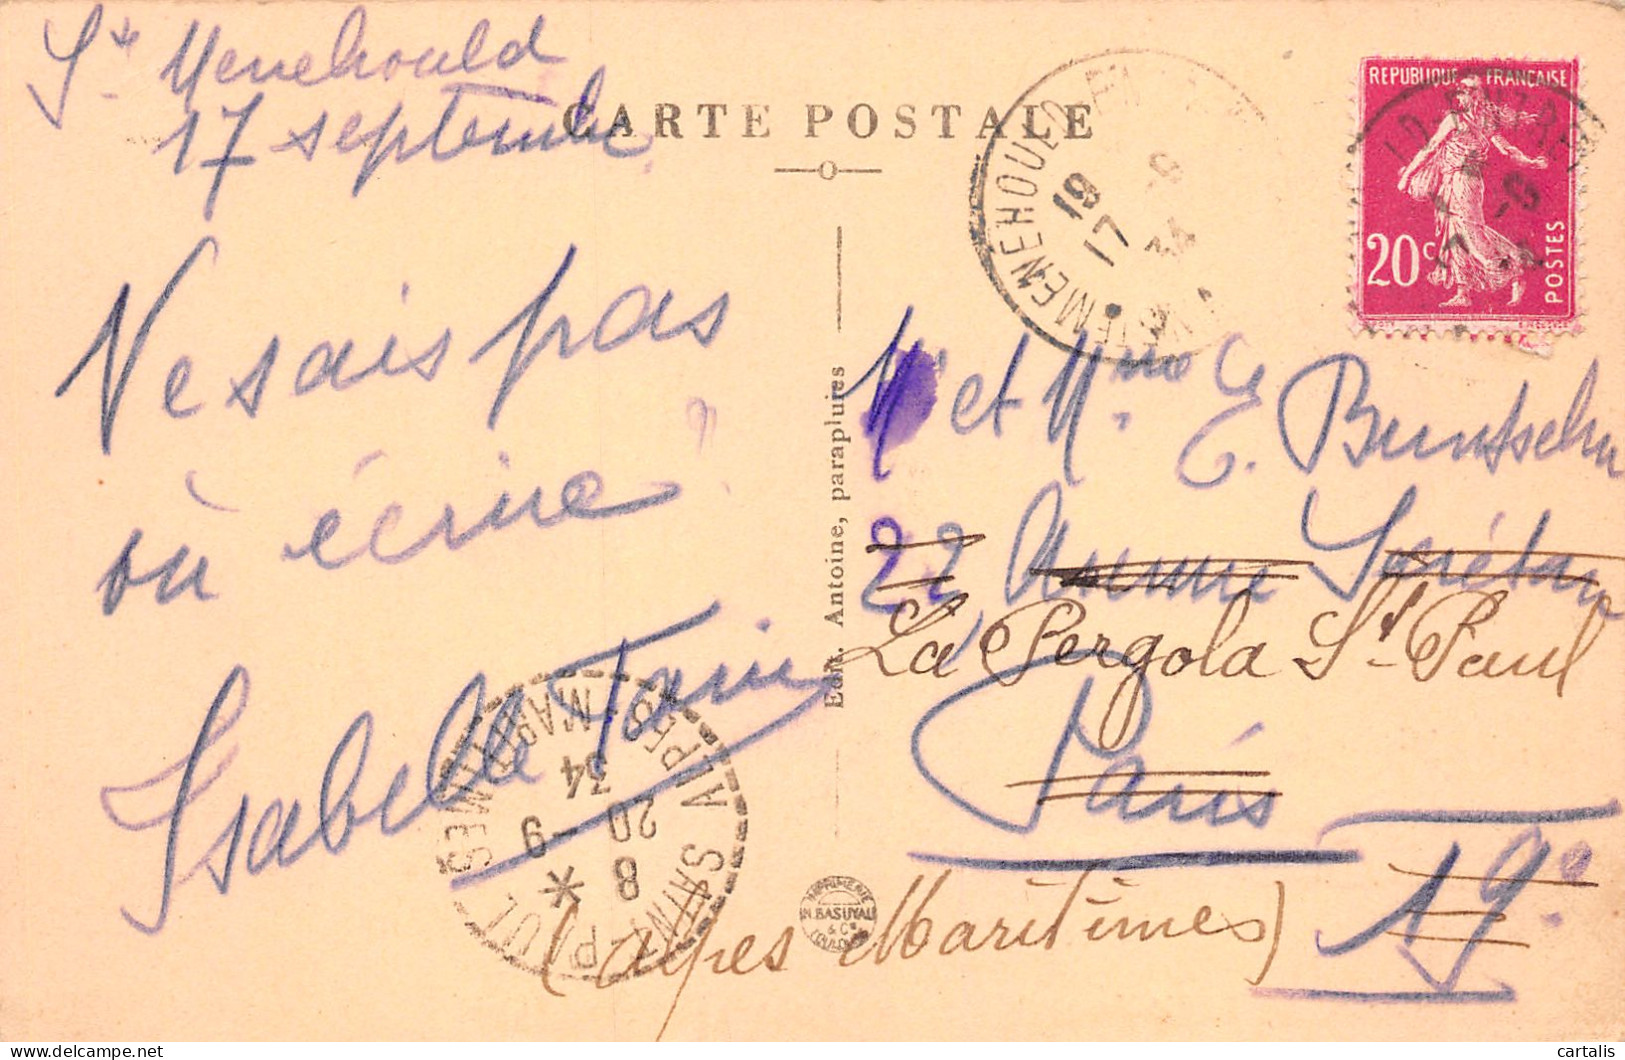 Ste Menehould
17 septembre
CARTE POSTALE
Ne sais pas
où écrire
Isabelle
Edit. Antoine, parapluies
REPUBLIQUE FRANÇAISE
20c
POSTES
MENEHOULD
19
17 -9
34
Mr et Mme
E.
22, Avenue
La Pergola St-Paul
Paris
19e
(Alpes Maritimes)
SAINT-PAUL
ALPES-MARITIMES
8
20 -9
34
IMPRIMERIE
N. BASUYAU
& Cie
TOULOUSE
cartalis